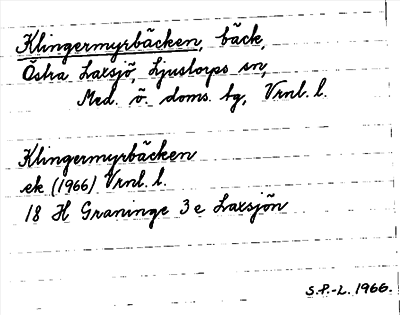 Klingermyrbäcken, bäck,
Östra Laxsjö, Ljustorps sn,
Med. ö. doms. tg, Vrnl. l.
Klingermyrbäcken
ek (1966) Vrnl. l.
18 H Graninge 3 e Laxsjön
S.P.-L. 1966.